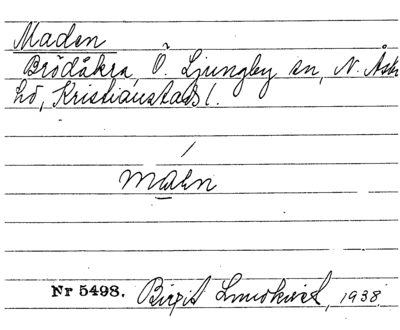 Maden
Brödåkra, Ö. Ljungby sn, N. Åsbo
hd, Kristianstads l.
Nr 5498. Birgit Lundkvist, 1938